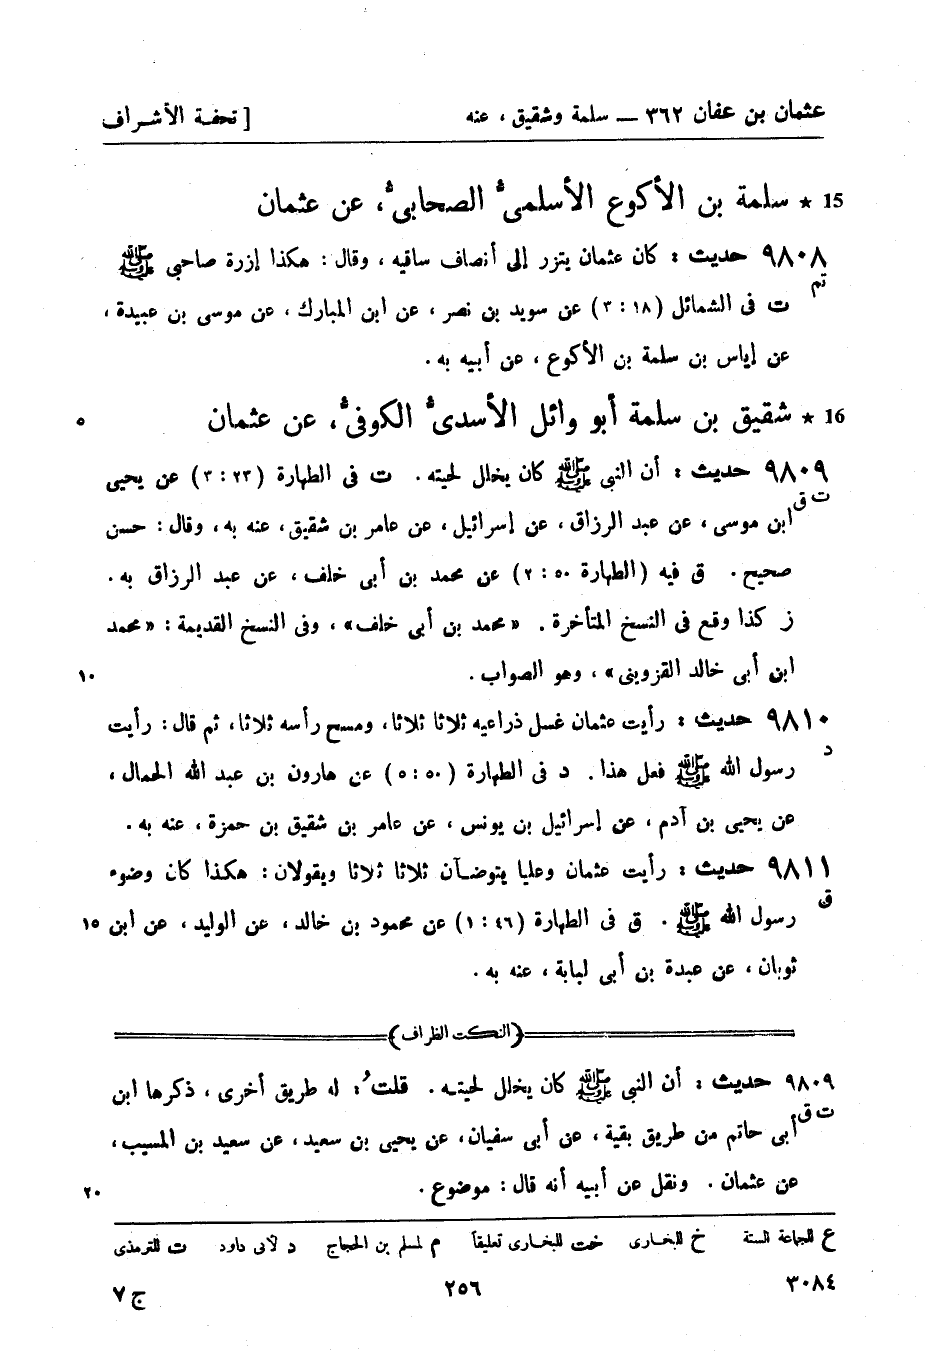 عثمان بن عفان ٣٦٢ ــ سلمة وشقيق ، عنه [ تحفة الأشراف
15 * سلمة بن الأكوع الأسلمىُّ الصحابىُّ، عن عثمان
٩٨٠٨ حديث : كان عثمان يتزر إلى أنصاف ساقيه ، وقال : هكذا إزرة صاحبى ﷺ
تم
ت فى الشمائل (١٨ : ٣) عن سويد بن نصر ، عن ابن المبارك ، عن موسى بن عبيدة ،
عن إياس بن سلمة بن الأكوع ، عن أبيه به .
16 * شقيق بن سلمة أبو وائل الأسدىُّ الكوفىُّ، عن عثمان ٥
٩٨٠٩ حديث : أن النبى ﷺ كان يخلل لحيته . ت فى الطهارة (٢٣ : ٣) عن يحيى
ت ق
ابن موسى ، عن عبد الرزاق ، عن إسرائيل ، عن عامر بن شقيق ، عنه به ، وقال : حسن
صحيح . ق فيه (الطهارة ٥٠ : ٢) عن محمد بن أبى خلف ، عن عبد الرزاق به .
ز كذا وقع فى النسخ المتأخرة . « محمد بن أبى خلف » ، وفى النسخ القديمة : « محمد
ابن أبى خالد القزوينى » ، وهو الصواب . ١٠
٩٨١٠ حديث : رأيت عثمان غسل ذراعيه ثلاثا ثلاثا ، ومسح رأسه ثلاثا ، ثم قال : رأيت
د
رسول الله ﷺ فعل هذا . د فى الطهارة (٥٠ : ٥) عن هارون بن عبد الله الحمال ،
عن يحيى بن آدم ، عن إسرائيل بن يونس ، عن عامر بن شقيق بن حمزة ، عنه به .
٩٨١١ حديث : رأيت عثمان وعليا يتوضآن ثلاثا ثلاثا ويقولان : هكذا كان وضوء
ق
رسول الله ﷺ . ق فى الطهارة (٤٦ : ١) عن محمود بن خالد ، عن الوليد ، عن ابن ١٥
ثوبان ، عن عبدة بن أبى لبابة ، عنه به .
(النكت الظراف)
٩٨٠٩ حديث : أن النبى ﷺ كان يخلل لحيته . قلتُ : له طريق أخرى ، ذكرها ابن
ت ق
أبى حاتم من طريق بقية ، عن أبى سفيان ، عن يحيى بن سعيد ، عن سعيد بن المسيب ،
عن عثمان . ونقل عن أبيه أنه قال : موضوع . ٢٠
ع للجماعة الستة خ للبخارى خت للبخارى تعليقاً م لمسلم بن الحجاج د لأبى داود ت للترمذى
٣٠٨٤ ٢٥٦ ج ٧